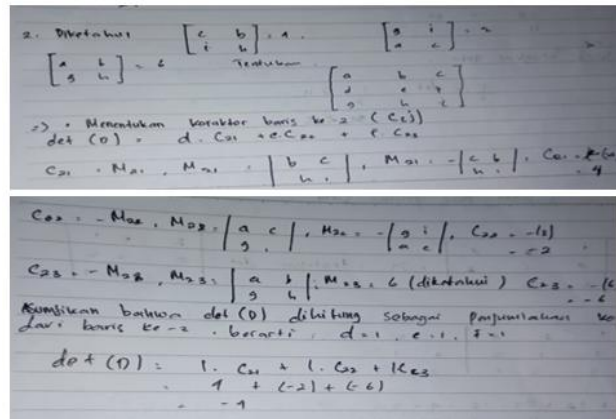 2. Diketahui [c b / i h] = 4. [g i / a c] = 2
[a b / g h] = 6 Tentukan [a b c / d e f / g h i]
=> • Menentukan baris ke 2 (C2j)
det (D) = d. C21 + e. C22 + f. C23
C21 = - M21, M21 = |b c / h i|, M21 = -|c b / h i|, C21
= 4
C22 = - M22, M22 = |a c / g i|, M22 = -|g i / a c|, C22 = -(2)
= -2
C23 = - M23, M23 = |a b / g h|, M23 = 6 (diketahui) C23 = -(6
= -6
Asumsikan bahwa det (D) dihitung sebagai penjumlahan ko
dari baris ke-2. berarti, d=1, e=1, f=1
det (D) = 1. C21 + 1. C22 + 1 C23
= 4 + (-2) + (-6)
= -4